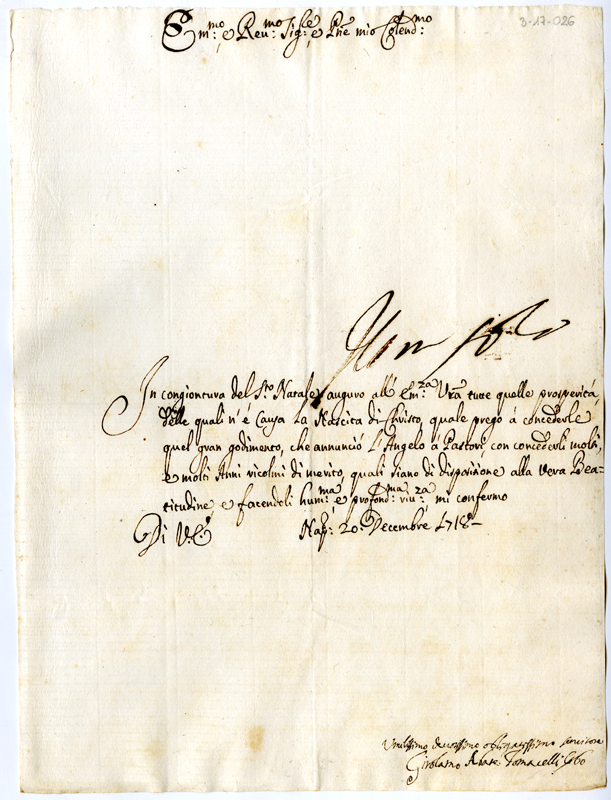 3-17-026
Em:mo e Reu:mo Sig:re e Pne mio Colend:mo
In congiontura del S.to Natale auguro all' Em:za Vra tute quelle prosperità
delle quali n' è Causa La Nascita di Christo, quale prego à concederle
quel gran godimento, che annunciò L'Angelo a Pastori, con concederli molti,
e molti Anni ricolmi di merito, quali siano di dispositione alla vera Bea-
titudine e facendoli hum:ma e profond:ma riu:za mi confermo
Di V.E. Nap: 20: Decembre 1718
Umilissimo devotissimo obligatissimo servitore
Girolamo Abate Tomacelli Cybo